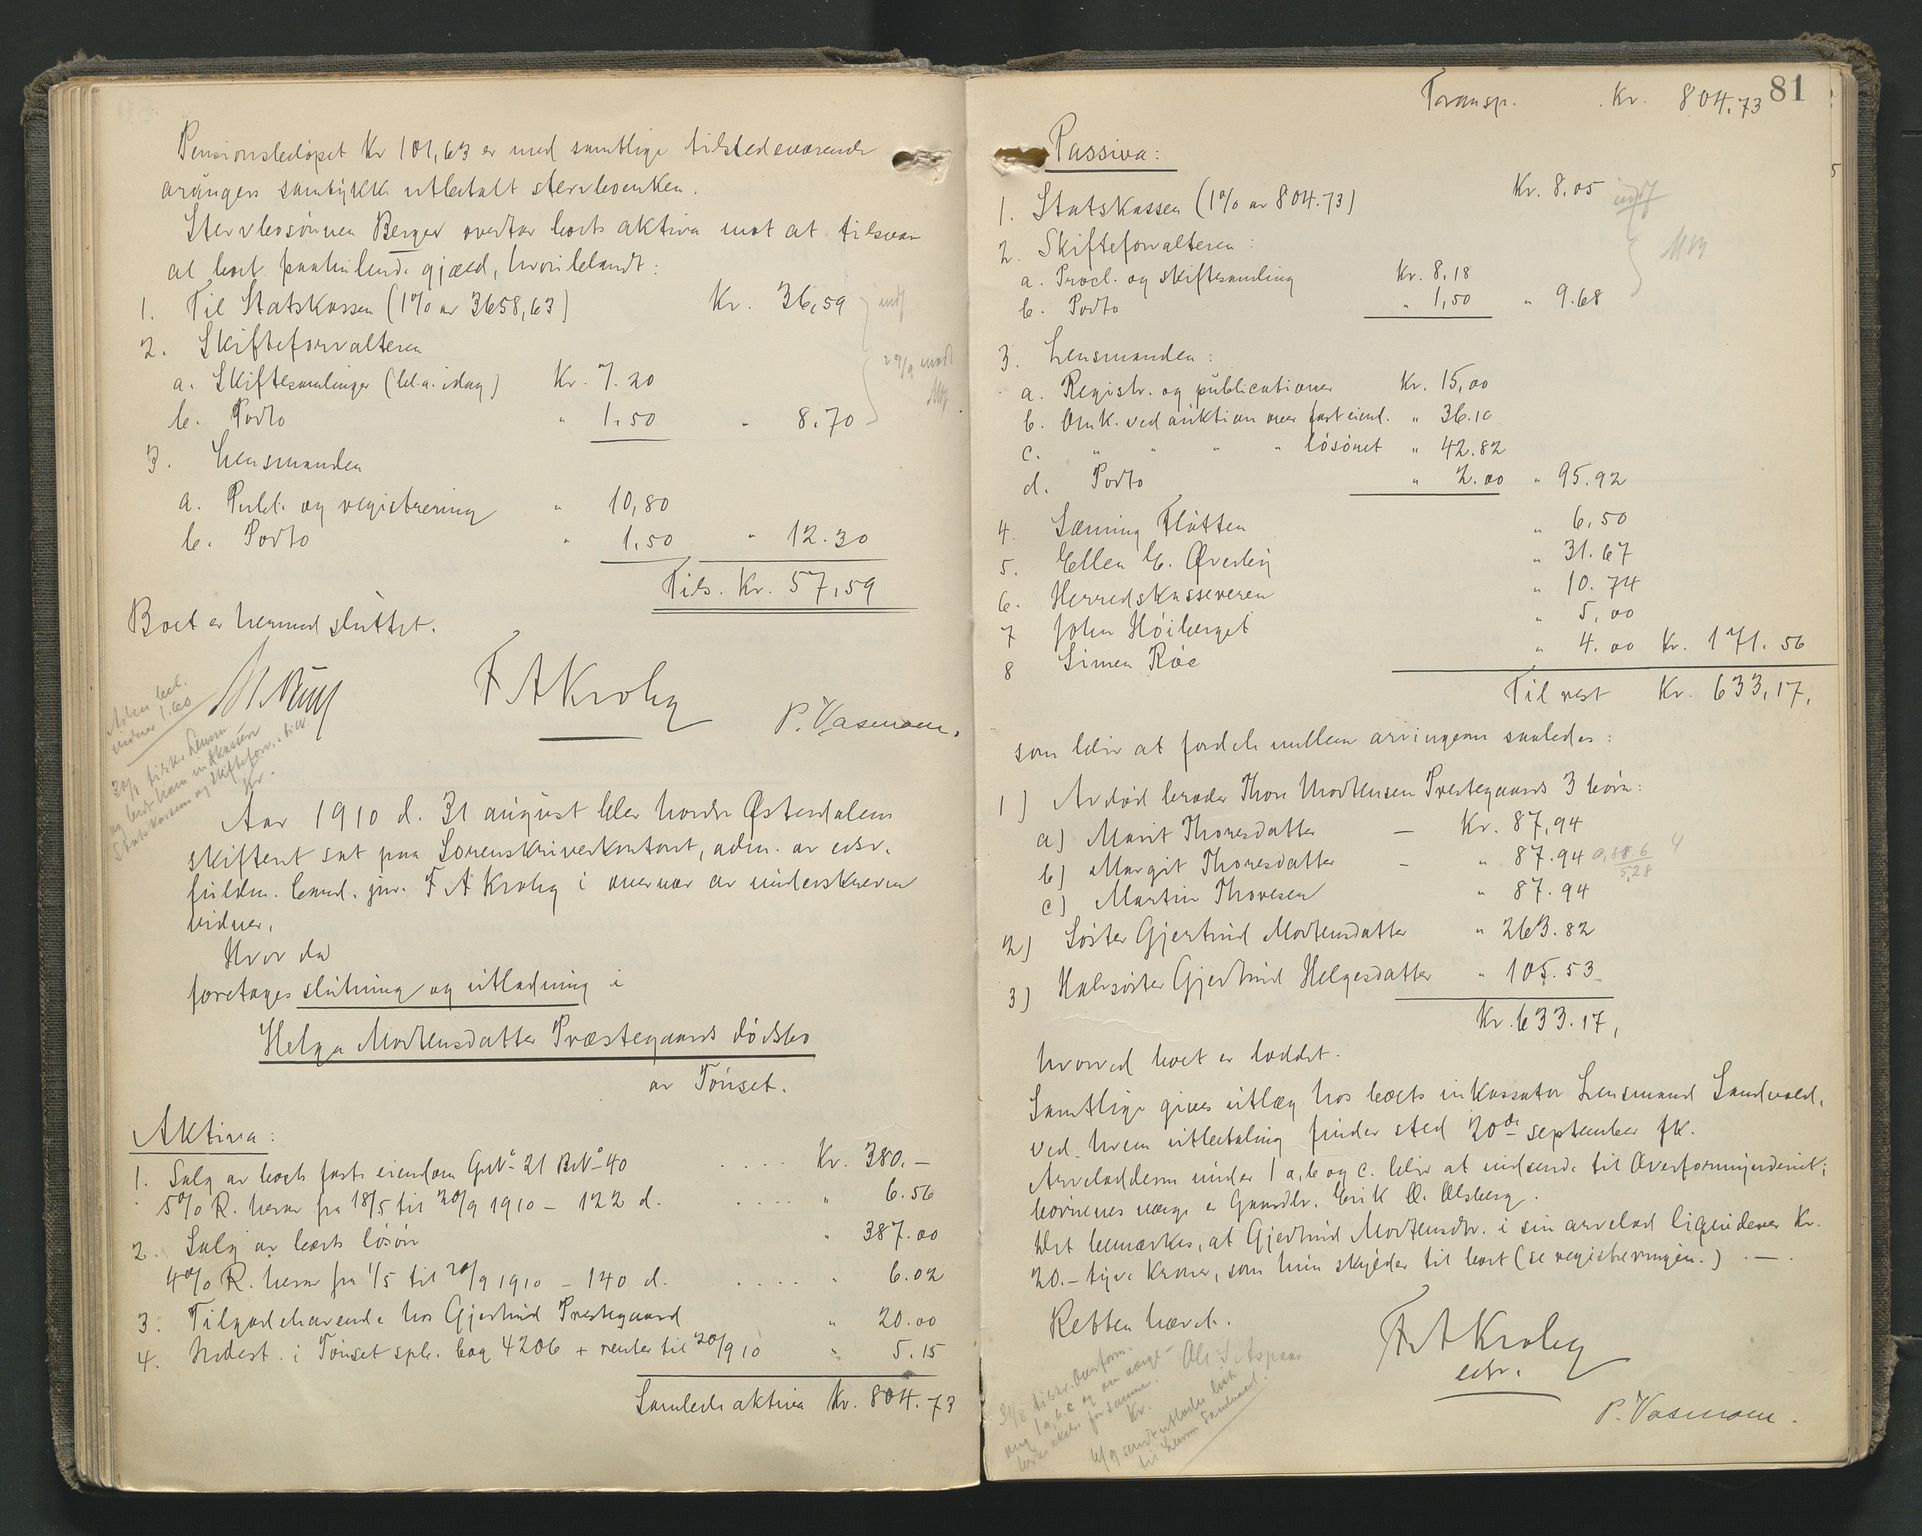 Pensionsbeløpet Kr 101,63 er med samtlige tilstedeværende
arvingers samtykke utbetalt stervboenken.
Stervbosønnen Berger overtar boets aktiva mot at tilsvare
al boet paahvilende gjæld, hvoriblandt:
1. Til Statskassen (1% av 3658,63) Kr. 36,59
2. Skifteforvalteren
a. Skiftesamlinger (bl.a. idag) Kr. 7.20
b. Porto " 1.50 " 8.70
3. Lensmanden
a. Publ. og registrering " 10,80
b. Porto " 1,50 " 12.30
Tils. Kr. 57,59
Boet er hermed sluttet.
F A Krohg
P. Vasmoen.
Aar 1910 d. 31 august blev Nordre Østerdalens
skifteret sat paa Sorenskriverkontoret, adm. av edsv.
fuldm. Cand. jur. F A Krohg i overvær av underskrevne
vidner.
Hvor da
foretages slutning og utlodning i
Helga Mortensdatter Præstegaards dødsbo
av Tönset.
Aktiva:
1. Salg av boets faste eiendom Gno 21 Bno 40 .... Kr. 380.-
5% R. herav fra 18/5 til 20/9 1910 - 122 d. .... " 6.56
2. Salg av boets løsøre " 387.00
4% R. herav fra 1/5 til 20/9 1910 - 140 d. .... " 6.02
3. Tilgodehavende hos Gjertrud Prestegaard " 20.00
4. Indest. i Tönset spb. bog 4206 + renter til 20/9 10 " 5.15
Samlede aktiva Kr. 804.73
81
Transp. Kr. 804.73
Passiva:
1. Statskassen (1% av 804.73) Kr. 8.05
2. Skifteforvalteren:
a. Procl. og skiftesamling Kr. 8,18
b. Porto " 1,50 " 9.68
3. Lensmanden:
a. Registr. og publicationer Kr. 15,00
b. Omk. ved auktion over fast eiend. " 36.10
c. " " " " løsøret " 42.82
d. Porto " 2.00 " 95.92
4. Sæming Fløtten " 6,50
5. Ellen E. Øverby " 31.67
6. Herredskassereren " 10.74
7 John Høiberget " 5,00
8 Simen Røe " 4.00 Kr. 171.56
Til rest Kr. 633,17,
som blir at fordele mellem arvingerne saaledes:
1) Avdød broder Thore Mortensen Prestegaards 3 børn:
a) Marit Thoresdatter - Kr. 87,94
b) Margit Thoresdatter - " 87.94
c) Martin Thoresen " 87.94
2) Søster Gjertrud Mortensdatter " 263.82
3) Halvsøster Gjertrud Helgesdatter " 105.53
Kr. 633.17,
hvorved boet er loddet.
Samtlige gives utlæg hos boets inkassator Lensmand Sandvold,
ved hvem utbetaling finder sted 20de september fk.
Arveloddene under 1 a, b og c. blir at indsende til Overformynderiet;
børnenes værge er Gaardbr. Erik O. Alsberg.
Det bemærkes, at Gjertrud Mortensdtr. i sin arvelod liqviderer Kr.
20.- tyve kroner, som hun skylder til boet (se registreringen.) . - .
Retten hævet.
F A Krohg
edsv.
P. Vasmoen.